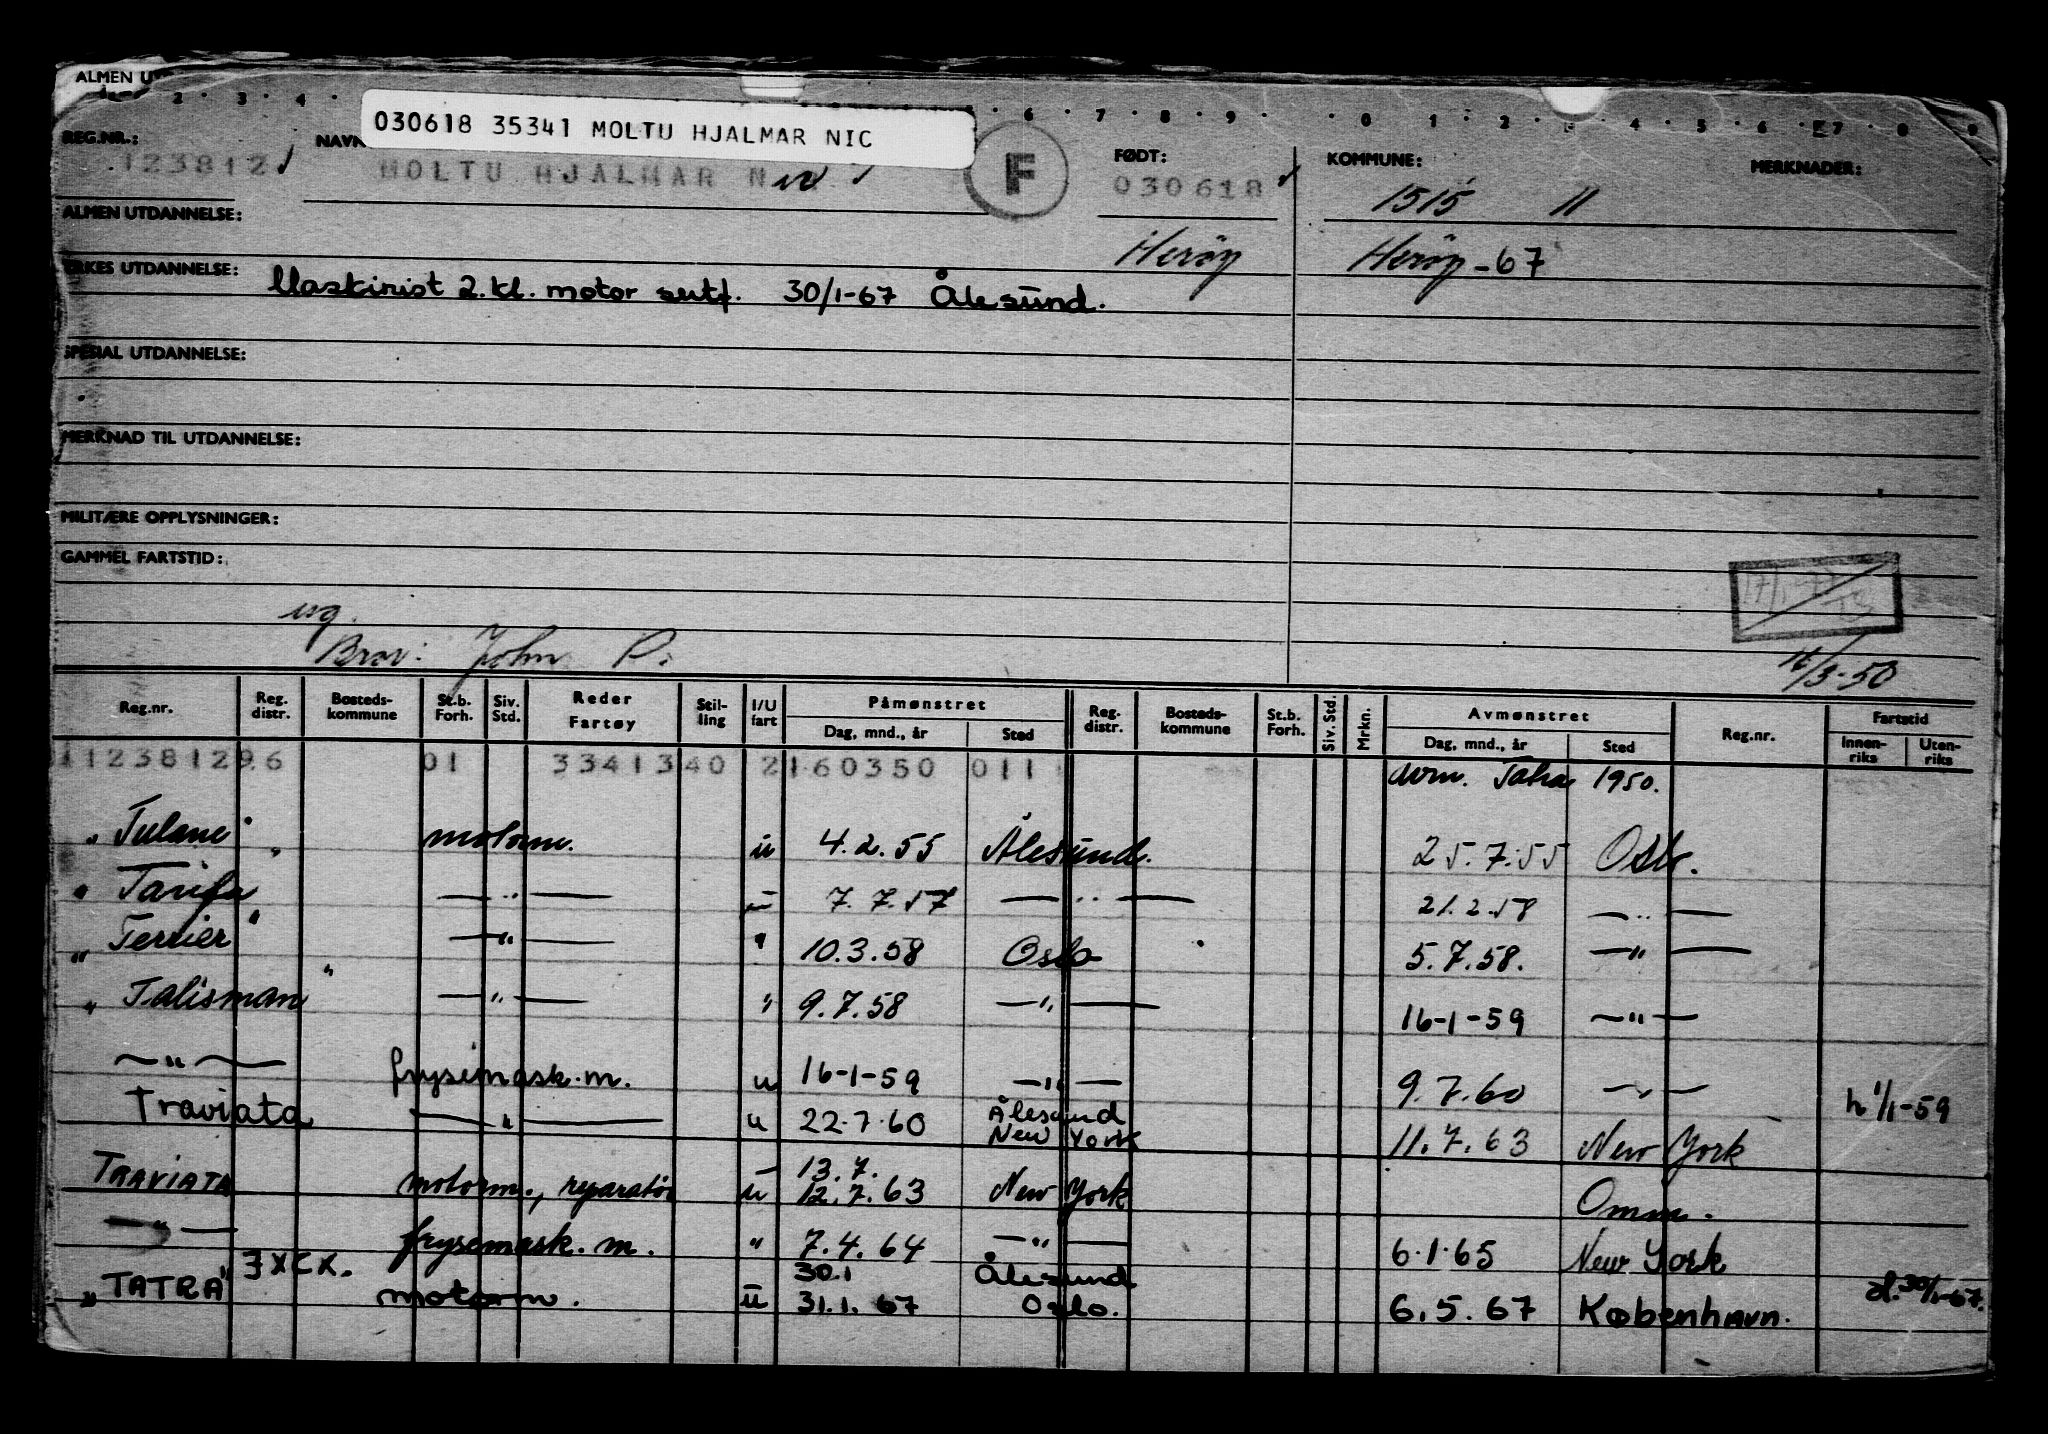 ALMEN
2 · 3 · 4 · 6 · 7 · 8 · 9 · 0 1 · 2 · 4 · 5 · 6 · 7 8 9
030618 35341 MOLTU HJALMAR NIC
REG.NR.: NAVN F FØDT: KOMMUNE: MERKNADER:
123812 MOLTU HJALMAR 030618 1515 11
ALMEN UTDANNELSE:
Herøy Herøy - 67
YRKES UTDANNELSE: Maskinist 2. kl. motor sertf. 30/1-67 Ålesund.
SPESIAL UTDANNELSE:
MERKNAD TIL UTDANNELSE:
MILITÆRE OPPLYSNINGER:
GAMMEL FARTSTID:
Bror: John P.
/3-50
Reg.nr. Reg. distr. Bosteds-kommune St.b. Forh. Siv. Std. Reder Fartøy Stil-ling I/U fart Påmønstret Dag, mnd., år Sted Reg. distr. Bosteds-kommune St.b. Forh. Siv. Std. Mrkn. Avmønstret Dag, mnd., år Sted Reg.nr. Fartstid Innen-riks Uten-riks
11238129.6 01 3341340 2160350 011 1950.
" Tulane " motorm. u 4.2.55 Ålesund. 25.7.55 Oslo.
" Tarifa " — " — u 7.7.57 — " — 21.2.58 — " —
" Terrier " — " — " 10.3.58 Oslo 5.7.58. — " —
" Talisman " — " — " 9.7.58 — " — 16-1-59 — " —
— " — frysemask.m. u 16-1-59 — " — 9.7.60 — " — 1/1-59
Traviata — " — u 22.7.60 Ålesund New York 11.7.63 New York
TRAVIATA motorm., reparatør u 13.7. 12.7.63 New York Omm.
— " — frysemask. m. " 7.4.64 — " — 6.1.65 New York
" TATRA" 3XCX. motorm. u 30.1 31.1.67 Ålesund Oslo. 6.5.67 København. 30/1-67.